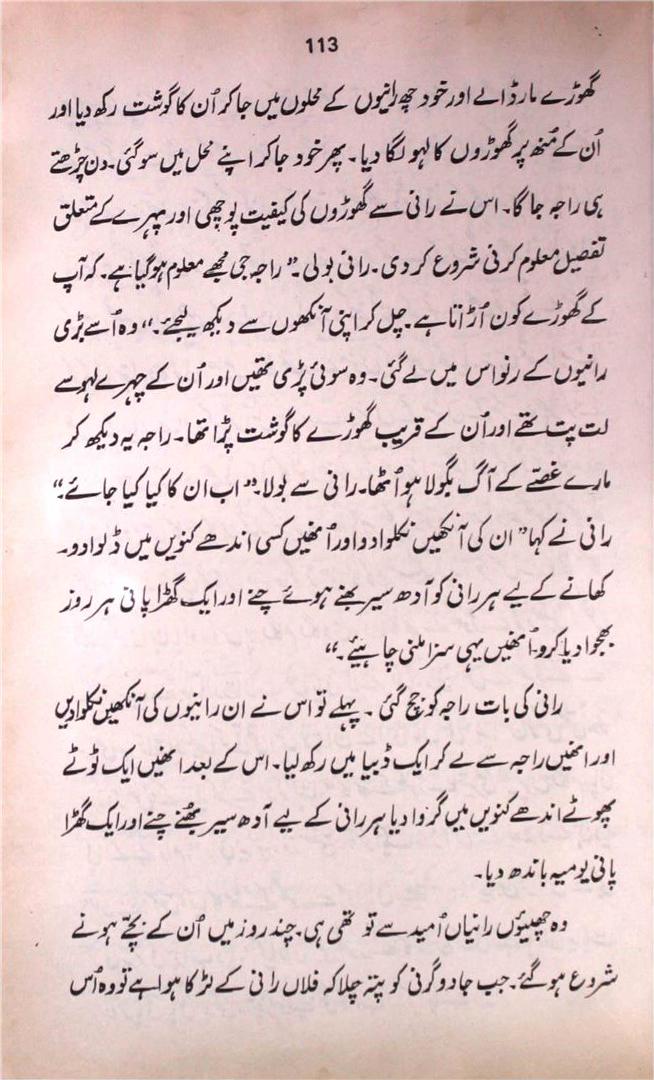 113
گھوڑے مار ڈالے اور خود چھ رانیوں کے محلوں میں جا کر اُن کا گوشت رکھ دیا اور
اُن کے مُنھ پر گھوڑوں کا لہو لگا دیا۔ پھر خود جا کر اپنے محل میں سو گئی۔ دن چڑھتے
ہی راجہ جاگا۔ اس نے رانی سے گھوڑوں کی کیفیت پوچھی اور پہرے کے متعلق
تفصیل معلوم کرنی شروع کر دی۔ رانی بولی۔ ”راجہ جی مجھے معلوم ہو گیا ہے۔ کہ آپ
کے گھوڑے کون اُڑاتا ہے۔ چل کر اپنی آنکھوں سے دیکھ لیجئے۔“ وہ اُسے بڑی
رانیوں کے رنواس میں لے گئی۔ وہ سوئی پڑی تھیں اور اُن کے چہرے لہو سے
لت پت تھے اور اُن کے قریب گھوڑے کا گوشت پڑا تھا۔ راجہ یہ دیکھ کر
مارے غصّے کے آگ بگولا ہو اُٹھا۔ رانی سے بولا۔ ”اب ان کا کیا کیا جائے۔“
رانی نے کہا ”ان کی آنکھیں نکلوا دو اور اُنھیں کسی اندھے کنویں میں ڈلوا دو۔
کھانے کے لیے ہر رانی کو آدھ سیر بھنے ہوئے چنے اور ایک گھڑا پانی ہر روز
بھجوا دیا کرو۔ اُنھیں یہی سزا ملنی چاہیئے۔“
رانی کی بات راجہ کو جچ گئی۔ پہلے تو اس نے ان رانیوں کی آنکھیں نکلوا دیں
اور انھیں راجہ سے لے کر ایک ڈبیا میں رکھ لیا۔ اس کے بعد انھیں ایک ٹوٹے
پھوٹے اندھے کنویں میں گروا دیا ہر رانی کے لیے آدھ سیر بھُنے چنے اور ایک گھڑا
پانی یومیہ باندھ دیا۔
وہ چھیئوں رانیاں اُمید سے تو تھی ہی۔ چند روز میں اُن کے بچّے ہونے
شروع ہو گئے۔ جب جادوگرنی کو پتہ چلا کہ فلاں رانی کے لڑکا ہوا ہے تو وہ اُس